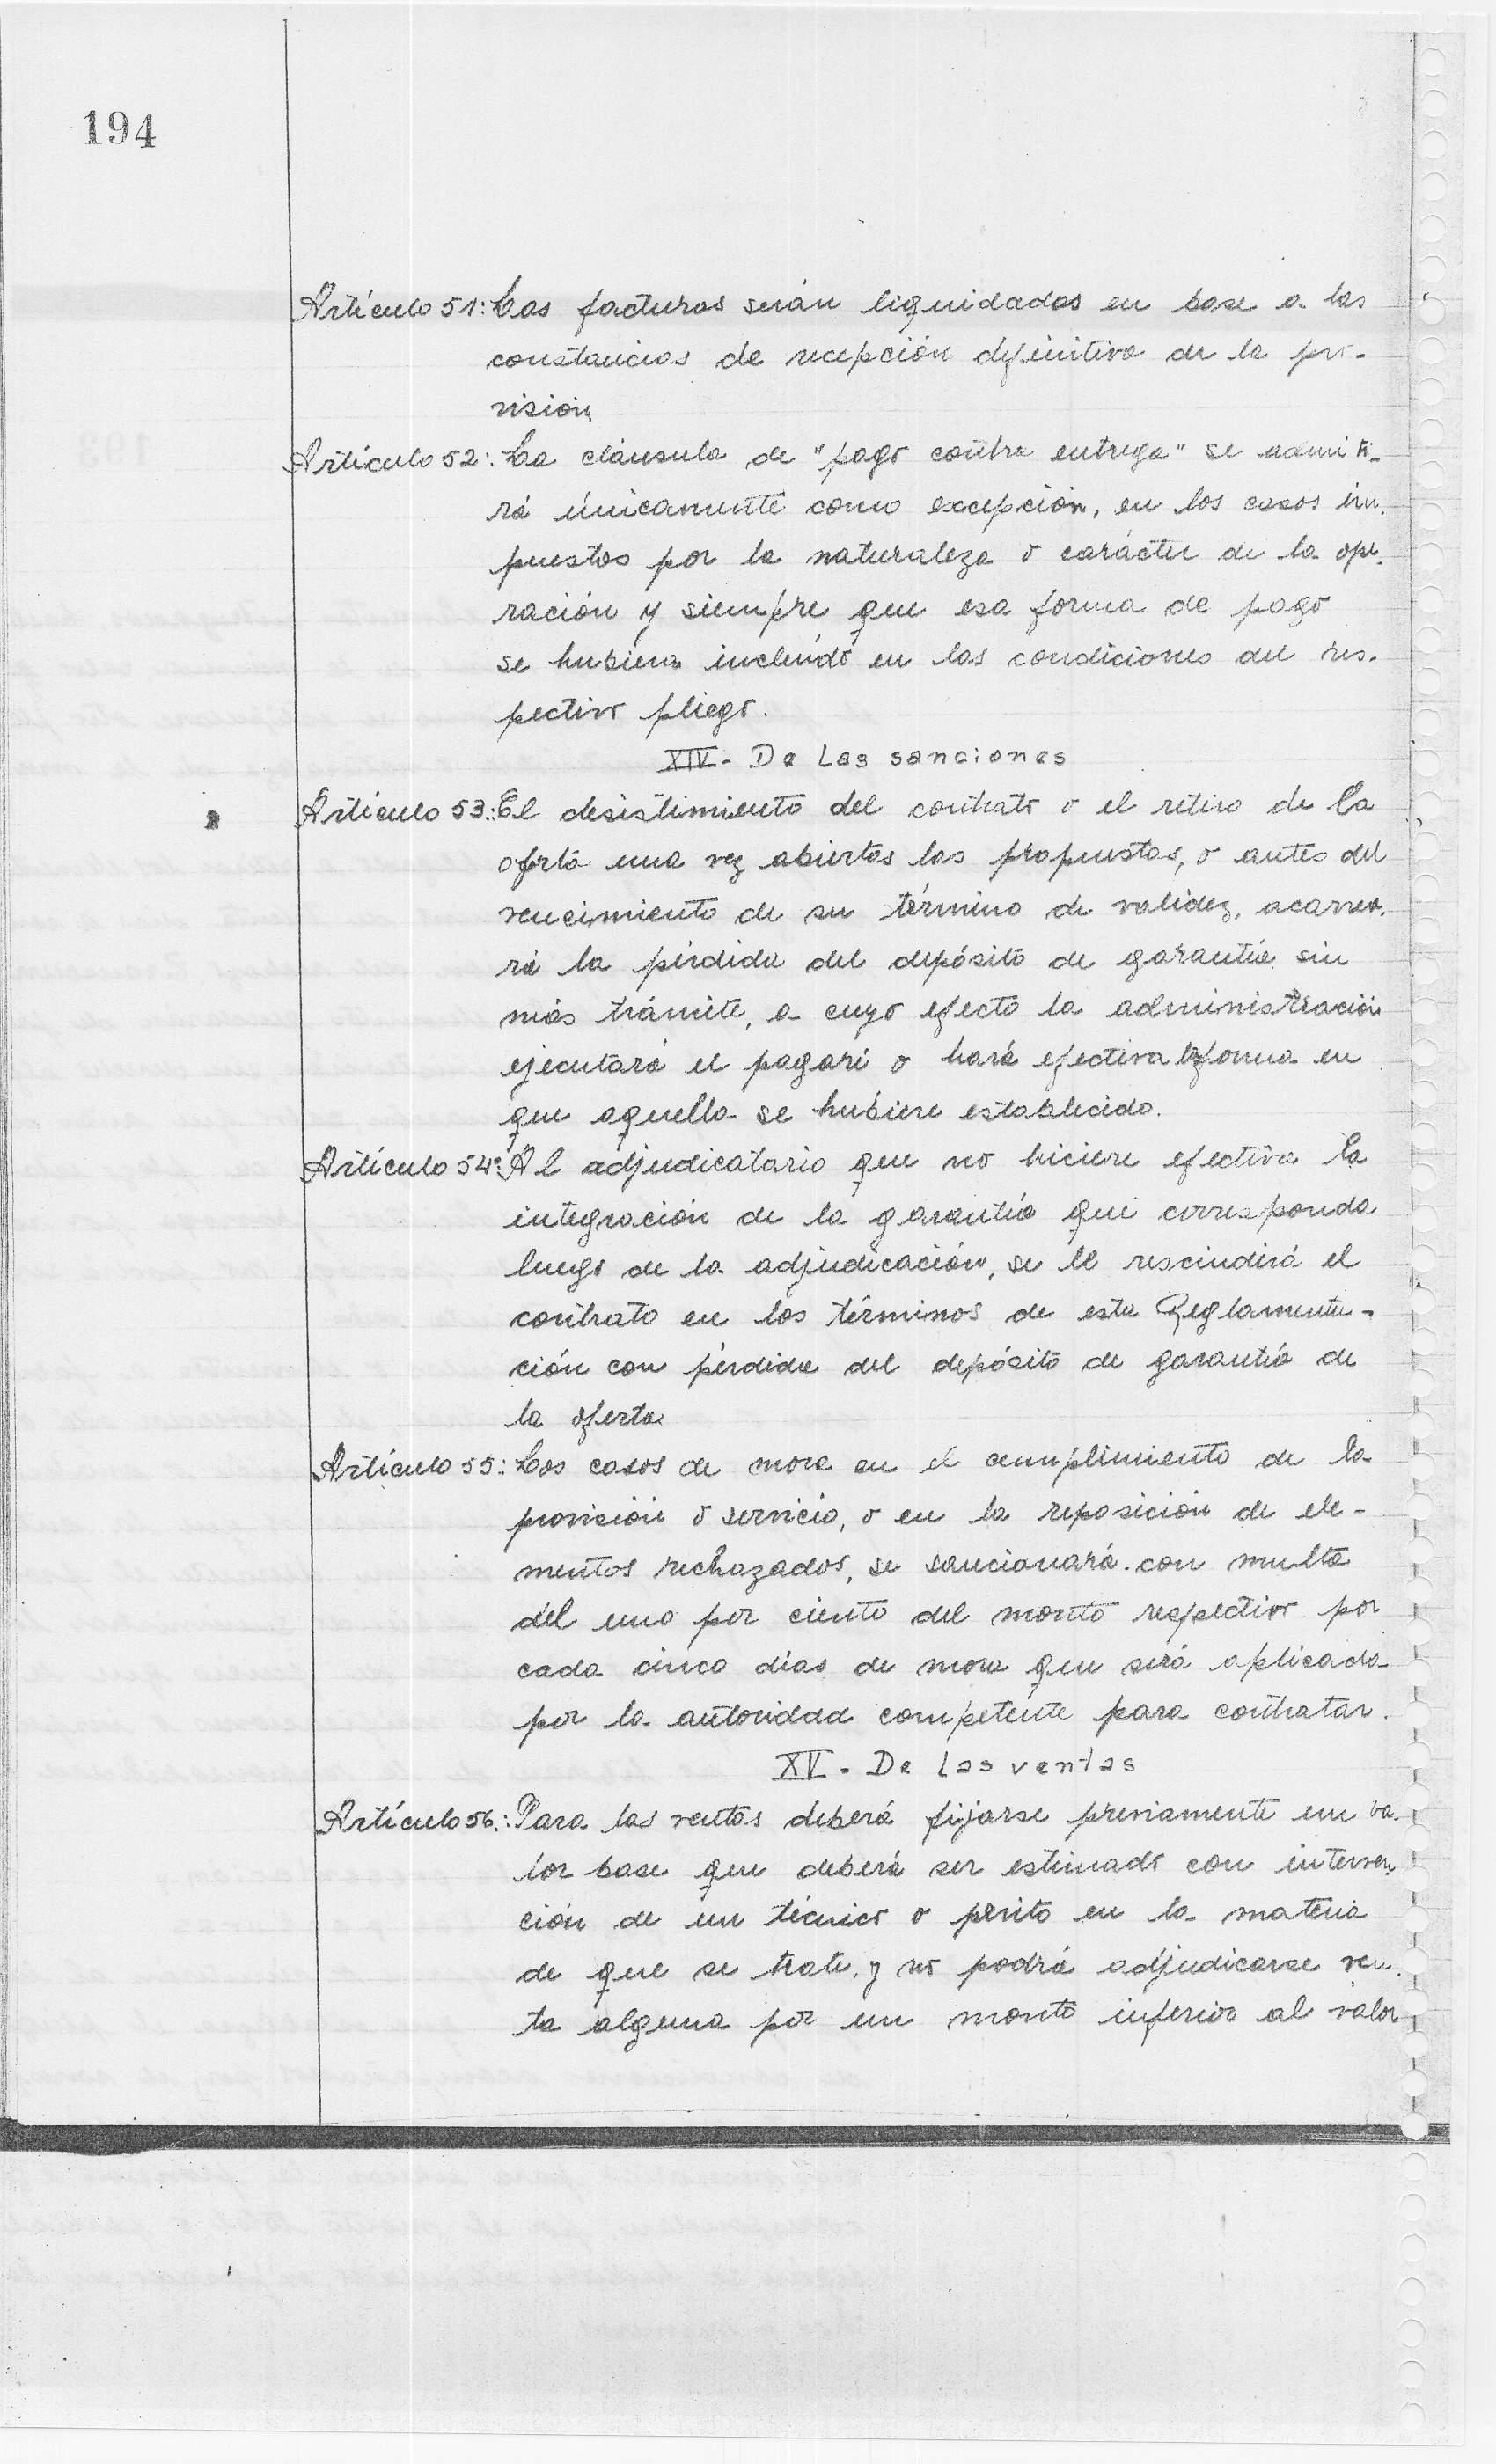 194
Artículo 51: Las facturas serán liquidadas en base a las
constancias de recepción definitiva de la pro-
visión.
Artículo 52: La cláusula de "pago contra entrega" se admiti-
rá únicamente como excepción, en los casos im-
puestos por la naturaleza o carácter de la ope-
ración y siempre que esa forma de pago
se hubiera incluído en las condiciones del res-
pectivo pliego.
XIV- De Las sanciones
Artículo 53: El desistimiento del contrato o el retiro de la
oferta una vez abiertas las propuestas, o antes del
vencimiento de su término de validez, acarrea-
rá la pérdida del depósito de garantía sin
más trámite, a cuyo efecto la administración
ejecutará el pagaré o hará efectiva la forma en
que aquella se hubiere establecido.
Artículo 54: Al adjudicatario que no hiciere efectiva la
integración de la garantía que corresponda
luego de la adjudicación, se le rescindirá el
contrato en los términos de esta Reglamenta-
ción con pérdida del depósito de garantía de
la oferta
Artículo 55: Los casos de mora en el cumplimiento de la
provisión o servicio, o en la reposición de ele-
mentos rechazados, se sancionará con multa
del uno por ciento del monto respectivo por
cada cinco días de mora que será aplicada
por la autoridad competente para contratar.
XV- De las ventas
Artículo 56: Para las ventas deberá fijarse previamente un va-
lor base que deberá ser estimado con interven-
ción de un técnico o périto en la materia
de que se trate, y no podrá adjudicarse ven-
ta alguna por un monto inferior al valor